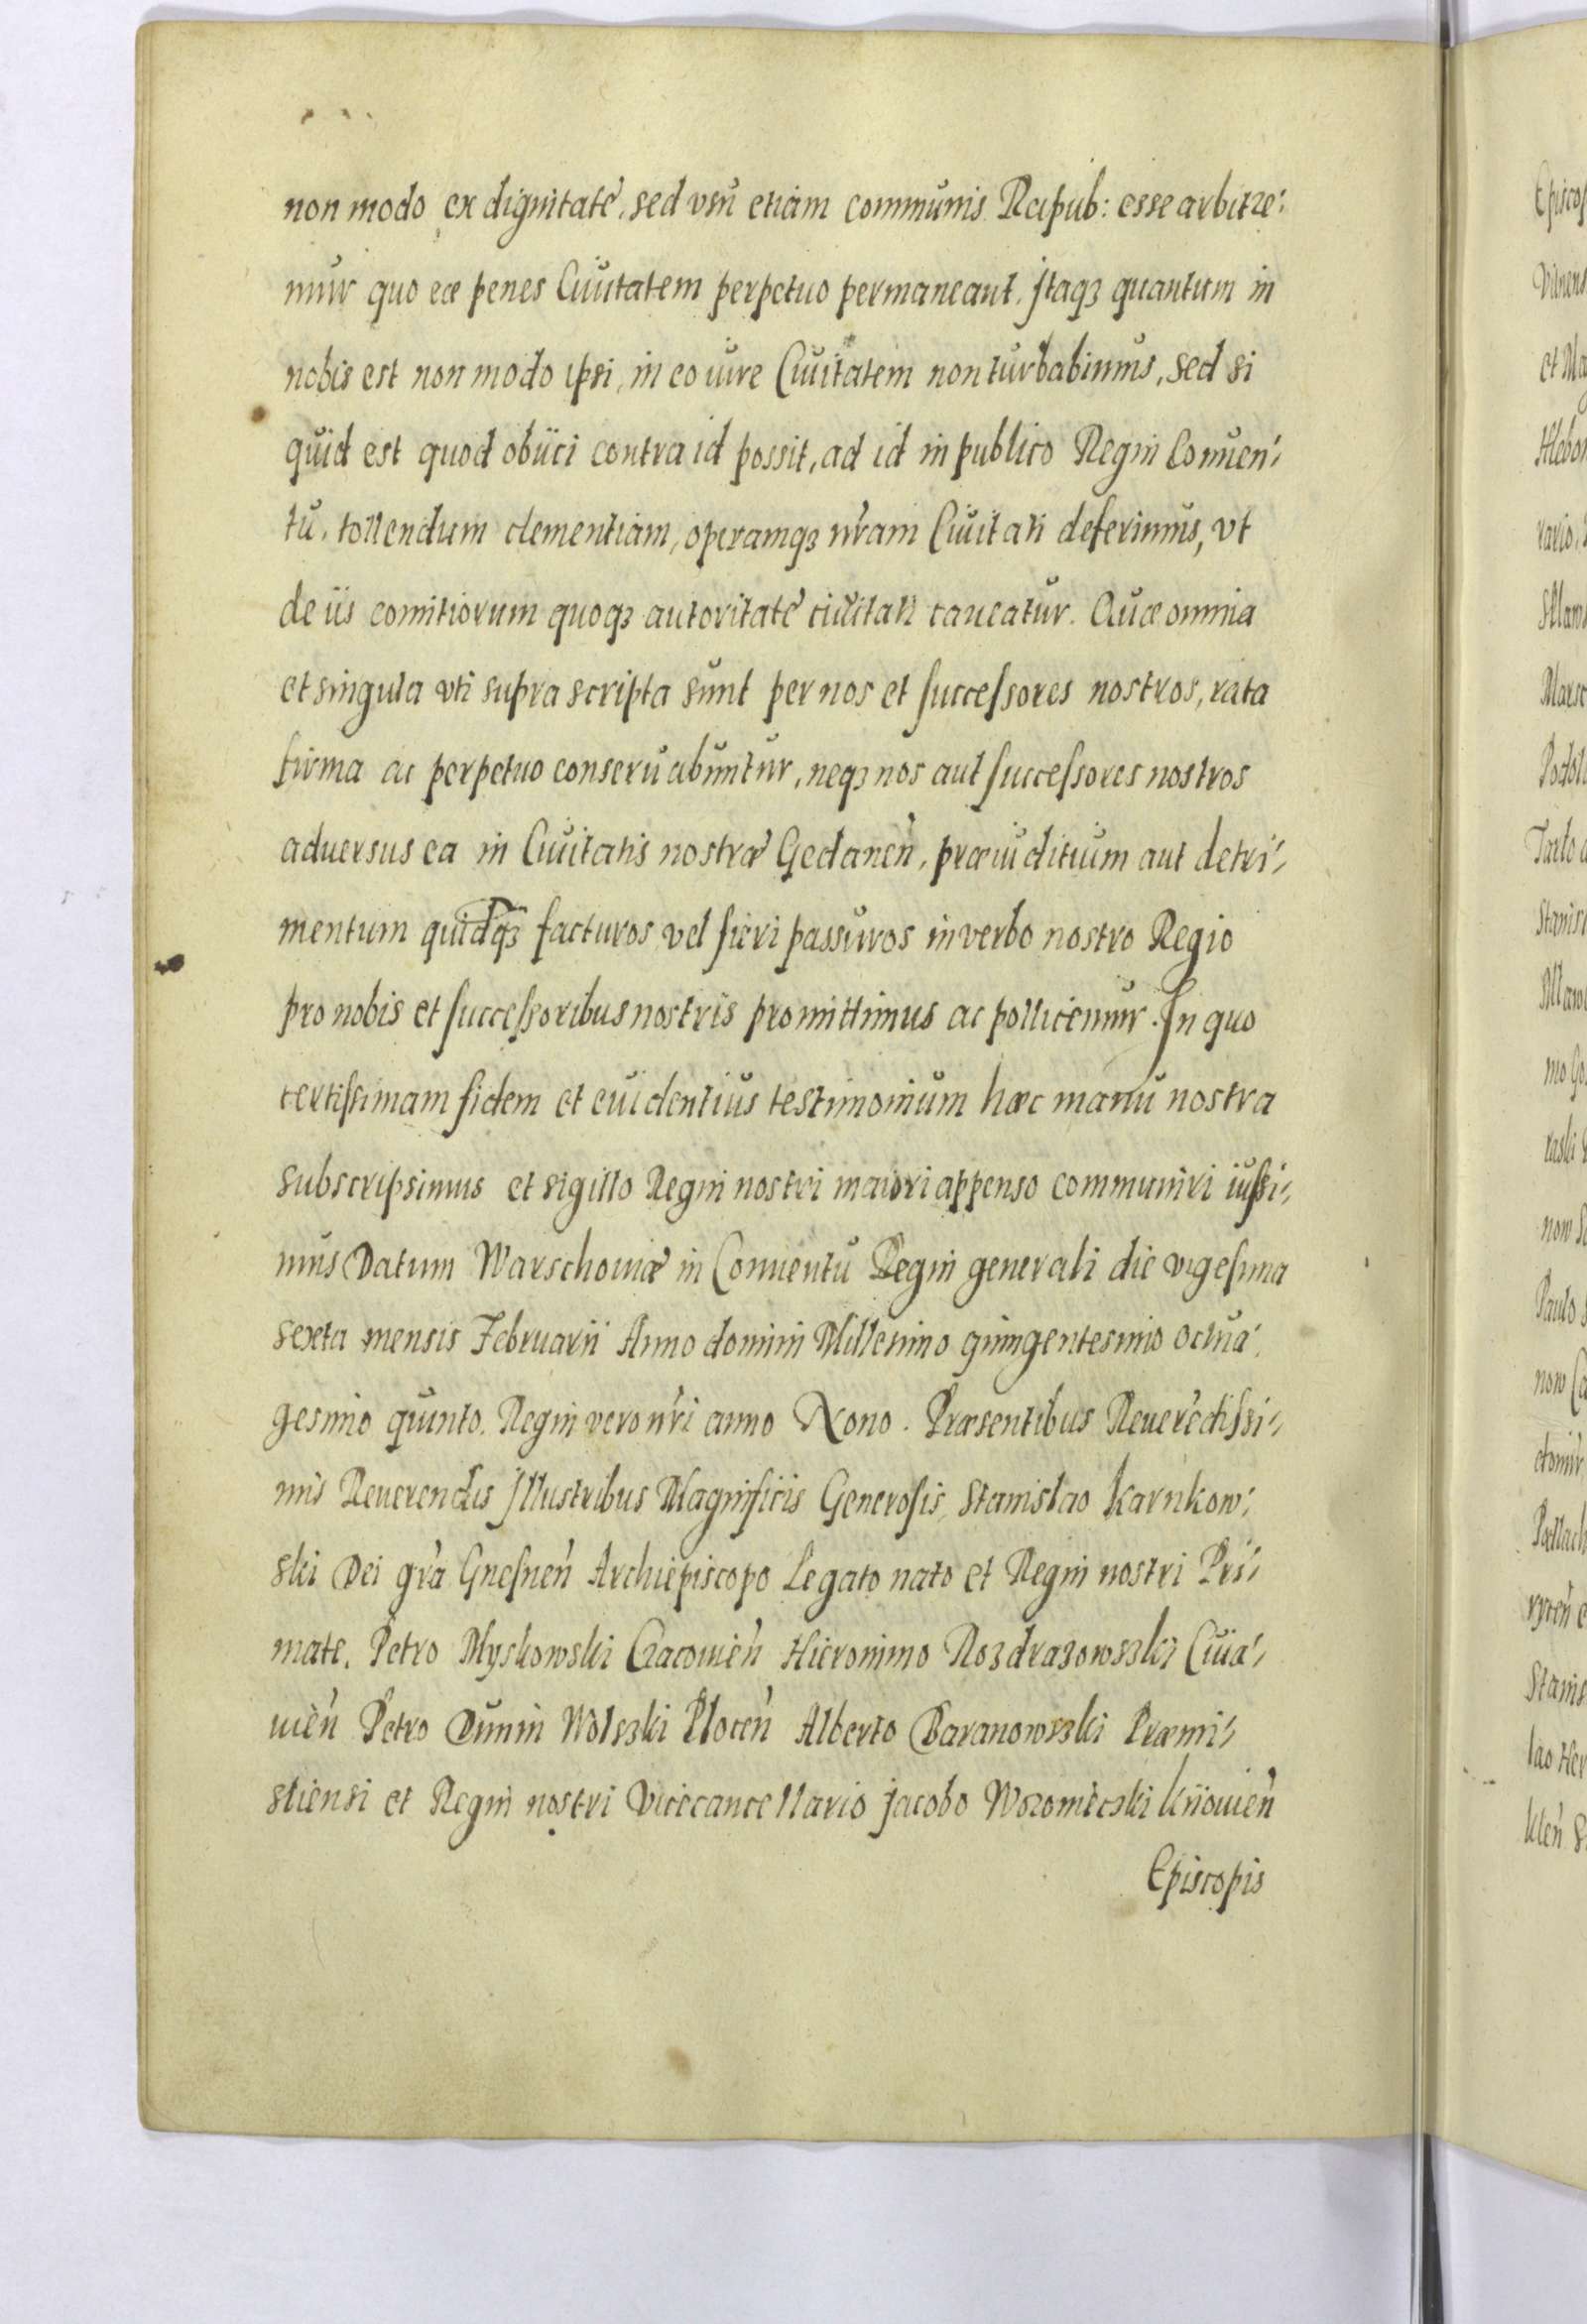 non modo ex dignitate, sed vsu etiam communis Reipub: esse arbitre:
mur quo eæ penes Ciuitatem perpetuo permaneant. Itaqȝ quantum in
nobis est non modo ipsi, in eo iure Ciuitatem non turbabimus, sed si
quid est quod obijci contra id possit, ad id in publico Regni Conuen:
tu, tollendum clementiam, operamqȝ nr̃am Ciuitati deferimus, vt
de iis comitiorum quoqȝ autoritate ciuitati caueatur. Quæ omnia
et singula vti supra scripta sunt per nos et successores nostros, rata
firma ac perpetuo conseruabuntur, neqȝ nos aut successores nostros
aduersus ea in Ciuitatis nostræ Gedanen̄, præiuditium aut detri:
mentum quidqȝ facturos vel fieri passuros in verbo nostro Regio
pro nobis et successoribus nostris promittimus ac pollicemur. In quo
certissimam fidem et euidentius testimonium hæc manu nostra
subscripsimus et sigillo Regni nostri maiori appenso communiri iussi:
mus Datum Warschouiæ in Conuentu Regni generali die vigesima
sexta mensis Februarii Anno domini Millesimo quingentesimo octua:
gesimo quinto. Regni vero nr̃i anno Nono. Præsentibus Reuerẽdissi:
mis Reuerendis Illustribus Magnificis Generosis, Stanislao Karnkow:
ski Dei gr̃a Gnesnen̄ Archiepiscopo Legato nato et Regni nostri Pri:
mate. Petro Myskowski Cracouien̄ Hieronimo Rozdrazowszki Cuia:
uien̄ Petro Dunin Wolszki Plocen̄ Alberto Baranowszki Præmi:
sliensi et Regni nostri Vicecancellario Jacobo Woromeczki Kiiouien̄
Episcopis